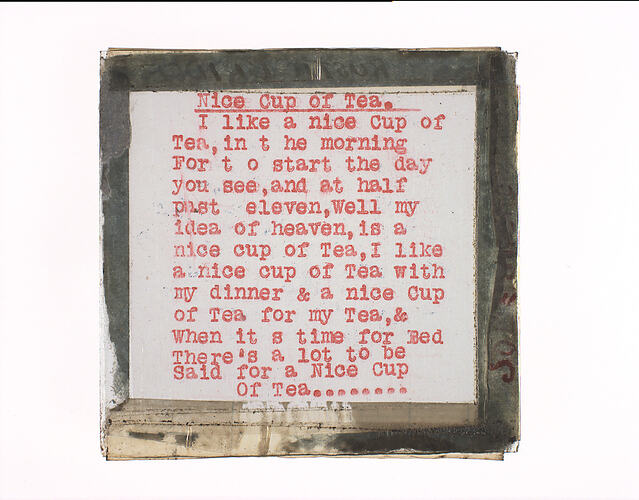 Nice Cup of Tea.
I like a nice Cup of
Tea,in t he morning
For t o start the day
you see,and at half
past eleven,Well my
idea of heaven,is a
nice cup of Tea,I like
a nice cup of Tea with
my dinner & a nice Cup
of Tea for my Tea,&
When it s time for Bed
There's a lot to be
Said for a Nice Cup
Of Tea.........